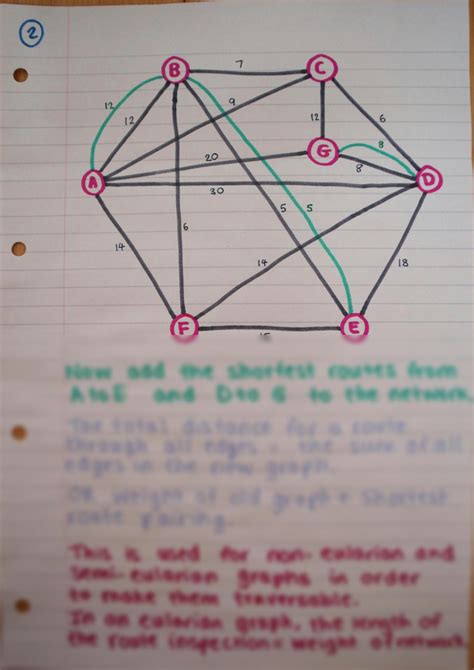 2
B 7 C
12 12 9 12 6
G 8
20 8
A 30 D
5 5
14 6 14 18
F 15 E
Now add the shortest routes from
A to E and D to G to the network.
The total distance for a route
through all edges = the sum of all
edges in the new graph.
OR weight of old graph + shortest
route pairing.
This is used for non-eularian and
semi-eularian graphs in order
to make them traversable.
In an eularian graph, the length of
the route inspection = weight of network